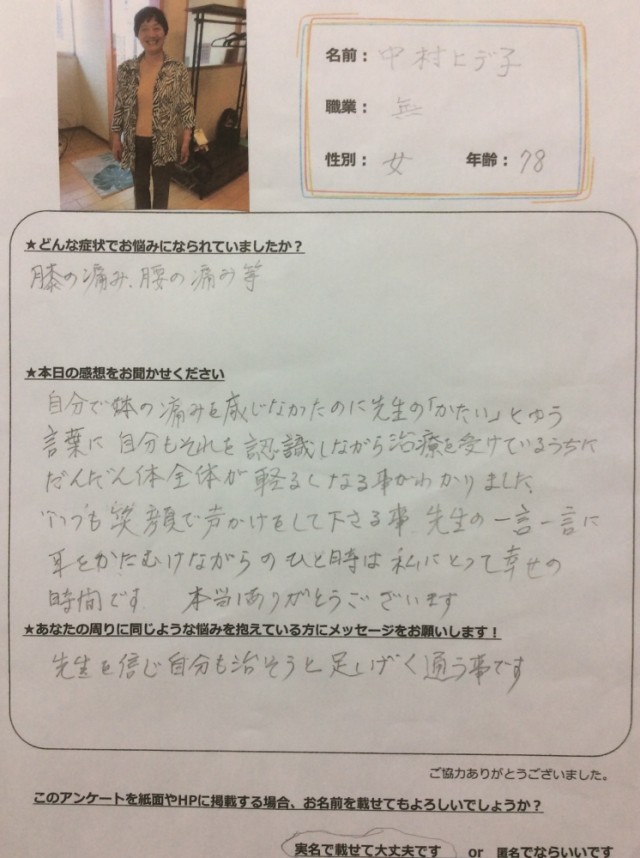 名前： 中村ヒデ子
職業： 無
性別： 女 年齢： 78
★どんな症状でお悩みになられていましたか？
膝の痛み、腰の痛み等
★本日の感想をお聞かせください
自分で体の痛みを感じなかったのに先生の「かたい」とゆう
言葉に自分もそれを認識しながら治療を受けているうちに
だんだん体全体が軽るくなる事がわかりました
いつも笑顔で声かけをして下さる事、先生の一言一言に
耳をかたむけながらのひと時は私にとって幸せの
時間です 本当にありがとうございます
★あなたの周りに同じような悩みを抱えている方にメッセージをお願いします！
先生を信じ自分も治そうと足しげく通う事です
ご協力ありがとうございました。
このアンケートを紙面やHPに掲載する場合、お名前を載せてもよろしいでしょうか？
実名で載せて大丈夫です or 匿名でならいいです